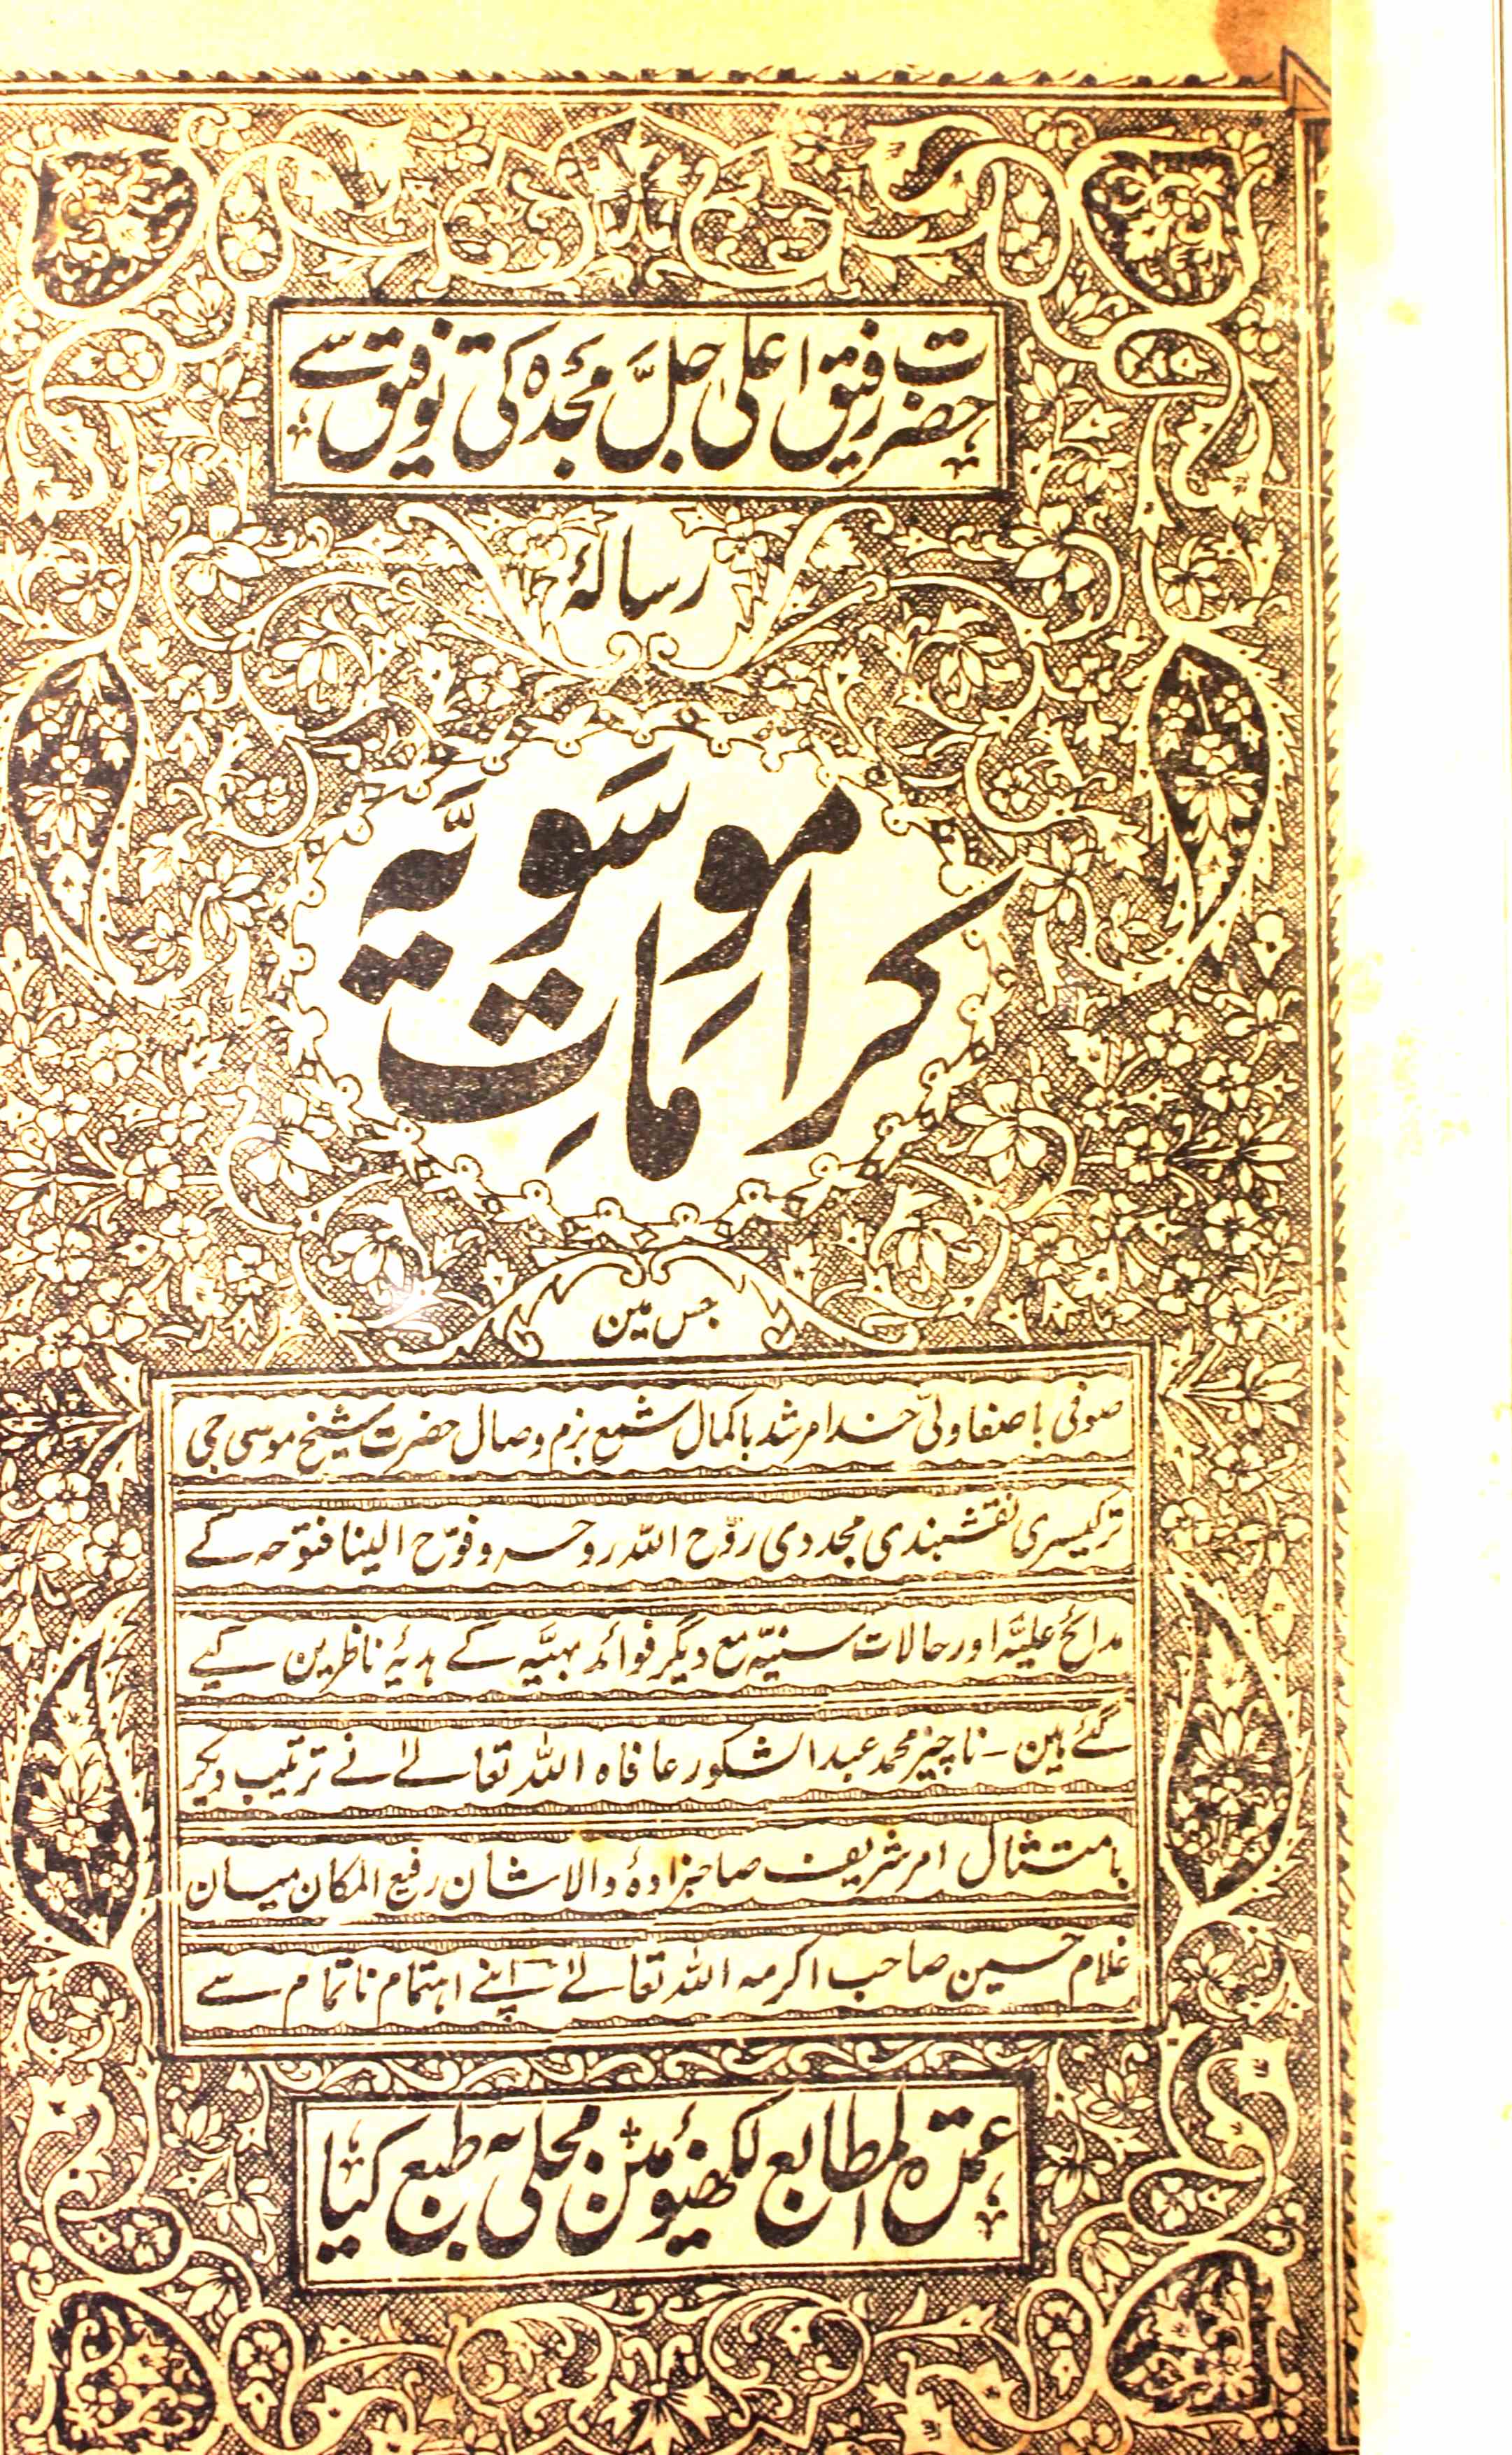 حضرت رفیق اعلیٰ جلَّ مجدُہ کی توفیق سے
رسالۂ
کراماتِ موسَویَّہ
جس مین
صوفی باصفا ولیّ خدا مرشد باکمال شمع بزم وصال حضرت شیخ موسی جی
ترکیسری نقشبندی مجددی روّح اللہ روحہ وفوّح الینا فتوحہ کے
مدائح علیَّہ اور حالات سنیّہ مع دیگر فوائد بہیَّہ کے ہدیۂ ناظرین کیے
گئے ہین ۔ ناچیز محمد عبدالشکور عافاہ اللہ تعالےٰ نے ترتیب دیکر
بامتثال امر شریف صاحبزادۂ والا شان رفیع المکان میان
غلام حسین صاحب اکرمہ اللہ تعالےٰ اپنے اہتمام ناتمام سے
عمدۃ المطابع لکھنؤ مین محلی بہ طبع کیا